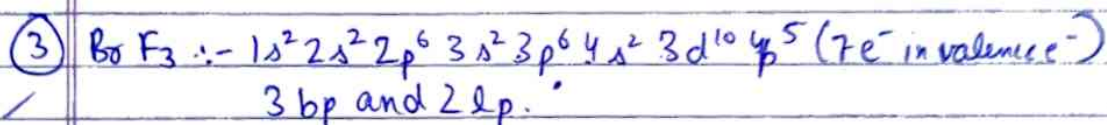 ③ Br F₃ :- 1s² 2s² 2p⁶ 3s² 3p⁶ 4s² 3d¹⁰ 4p⁵ (7e⁻ in valence e⁻)
3 bp and 2 lp.